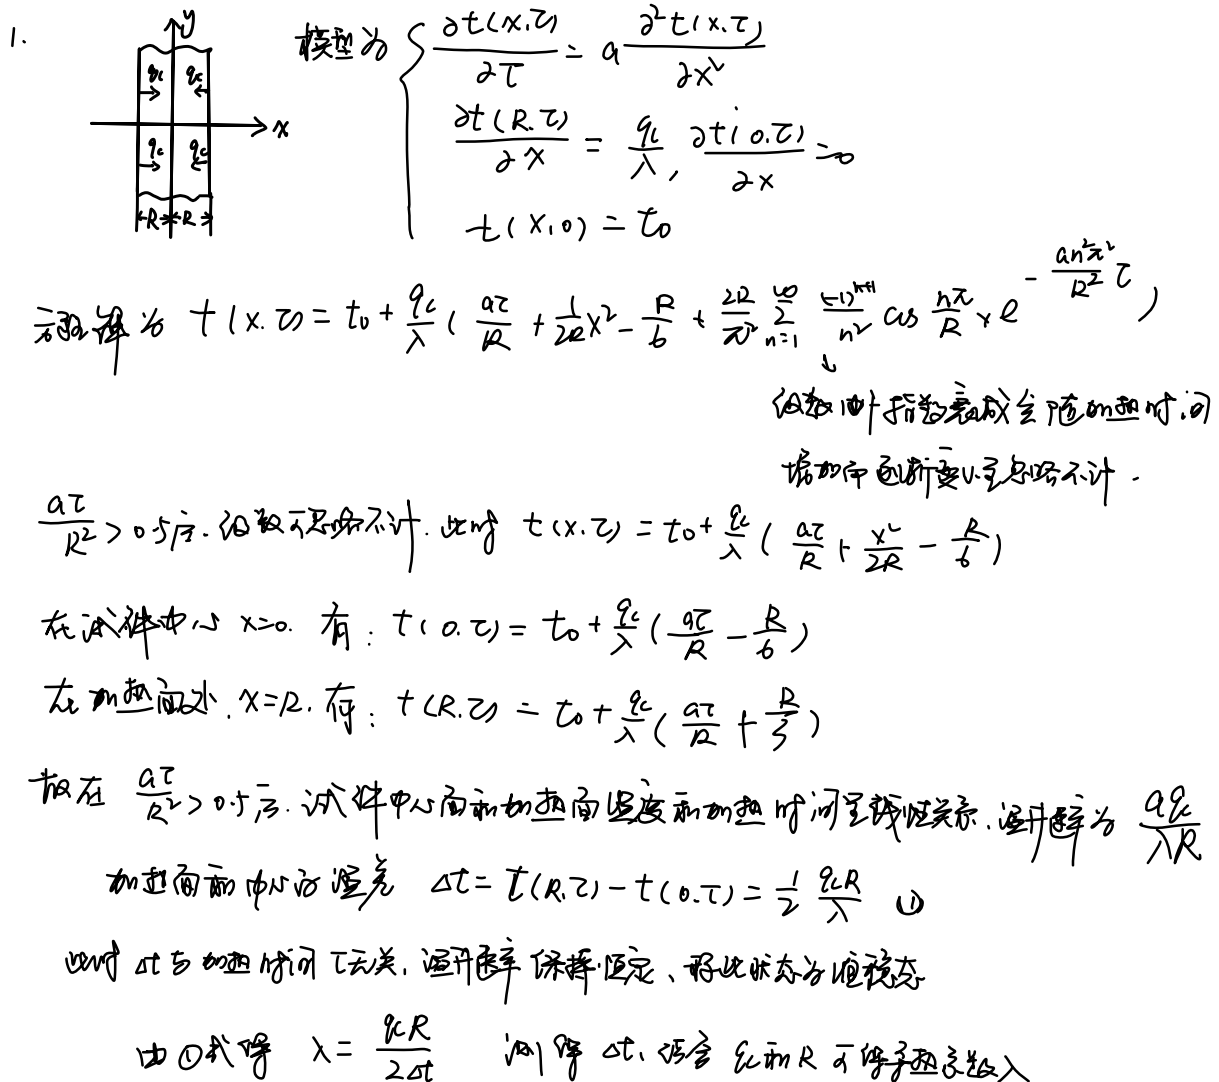 1.
y
x
q_c q_c
q_c q_c
R R
模型为 { ∂t(x.τ)/∂τ = a ∂²t(x.τ)/∂x²
∂t(R.τ)/∂x = q_c/λ, ∂t(0.τ)/∂x = 0
t(x,0) = t₀
方程解为 t(x.τ) = t₀ + q_c/λ ( aτ/R + 1/2R x² - R/6 + 2R/π² ∑_{n=1}^{∞} (-1)^{n+1}/n² cos nπ/R x e^{- an²π²/R² τ} )
↓
级数 指数衰减会随加热时间
增加而逐渐变小至忽略不计.
aτ/R² > 0.5后. 级数可忽略不计. 此时 t(x.τ) = t₀ + q_c/λ ( aτ/R + x²/2R - R/6 )
在试件中心 x=0. 有: t(0.τ) = t₀ + q_c/λ ( aτ/R - R/6 )
在加热面处. x=R. 有: t(R.τ) = t₀ + q_c/λ ( aτ/R + R/3 )
故在 aτ/R² > 0.5后. 试件中心面和加热面温度和加热时间呈线性关系. 温升速率为 aq_c/λR
加热面和中心的温差 Δt = t(R.τ) - t(0.τ) = 1/2 q_cR/λ ①
此时 Δt与加热时间τ无关. 温升速率保持恒定、称此状态为准稳态
由①式得 λ = q_cR/2Δt 测得Δt. 结合q_c和R可得导热系数λ